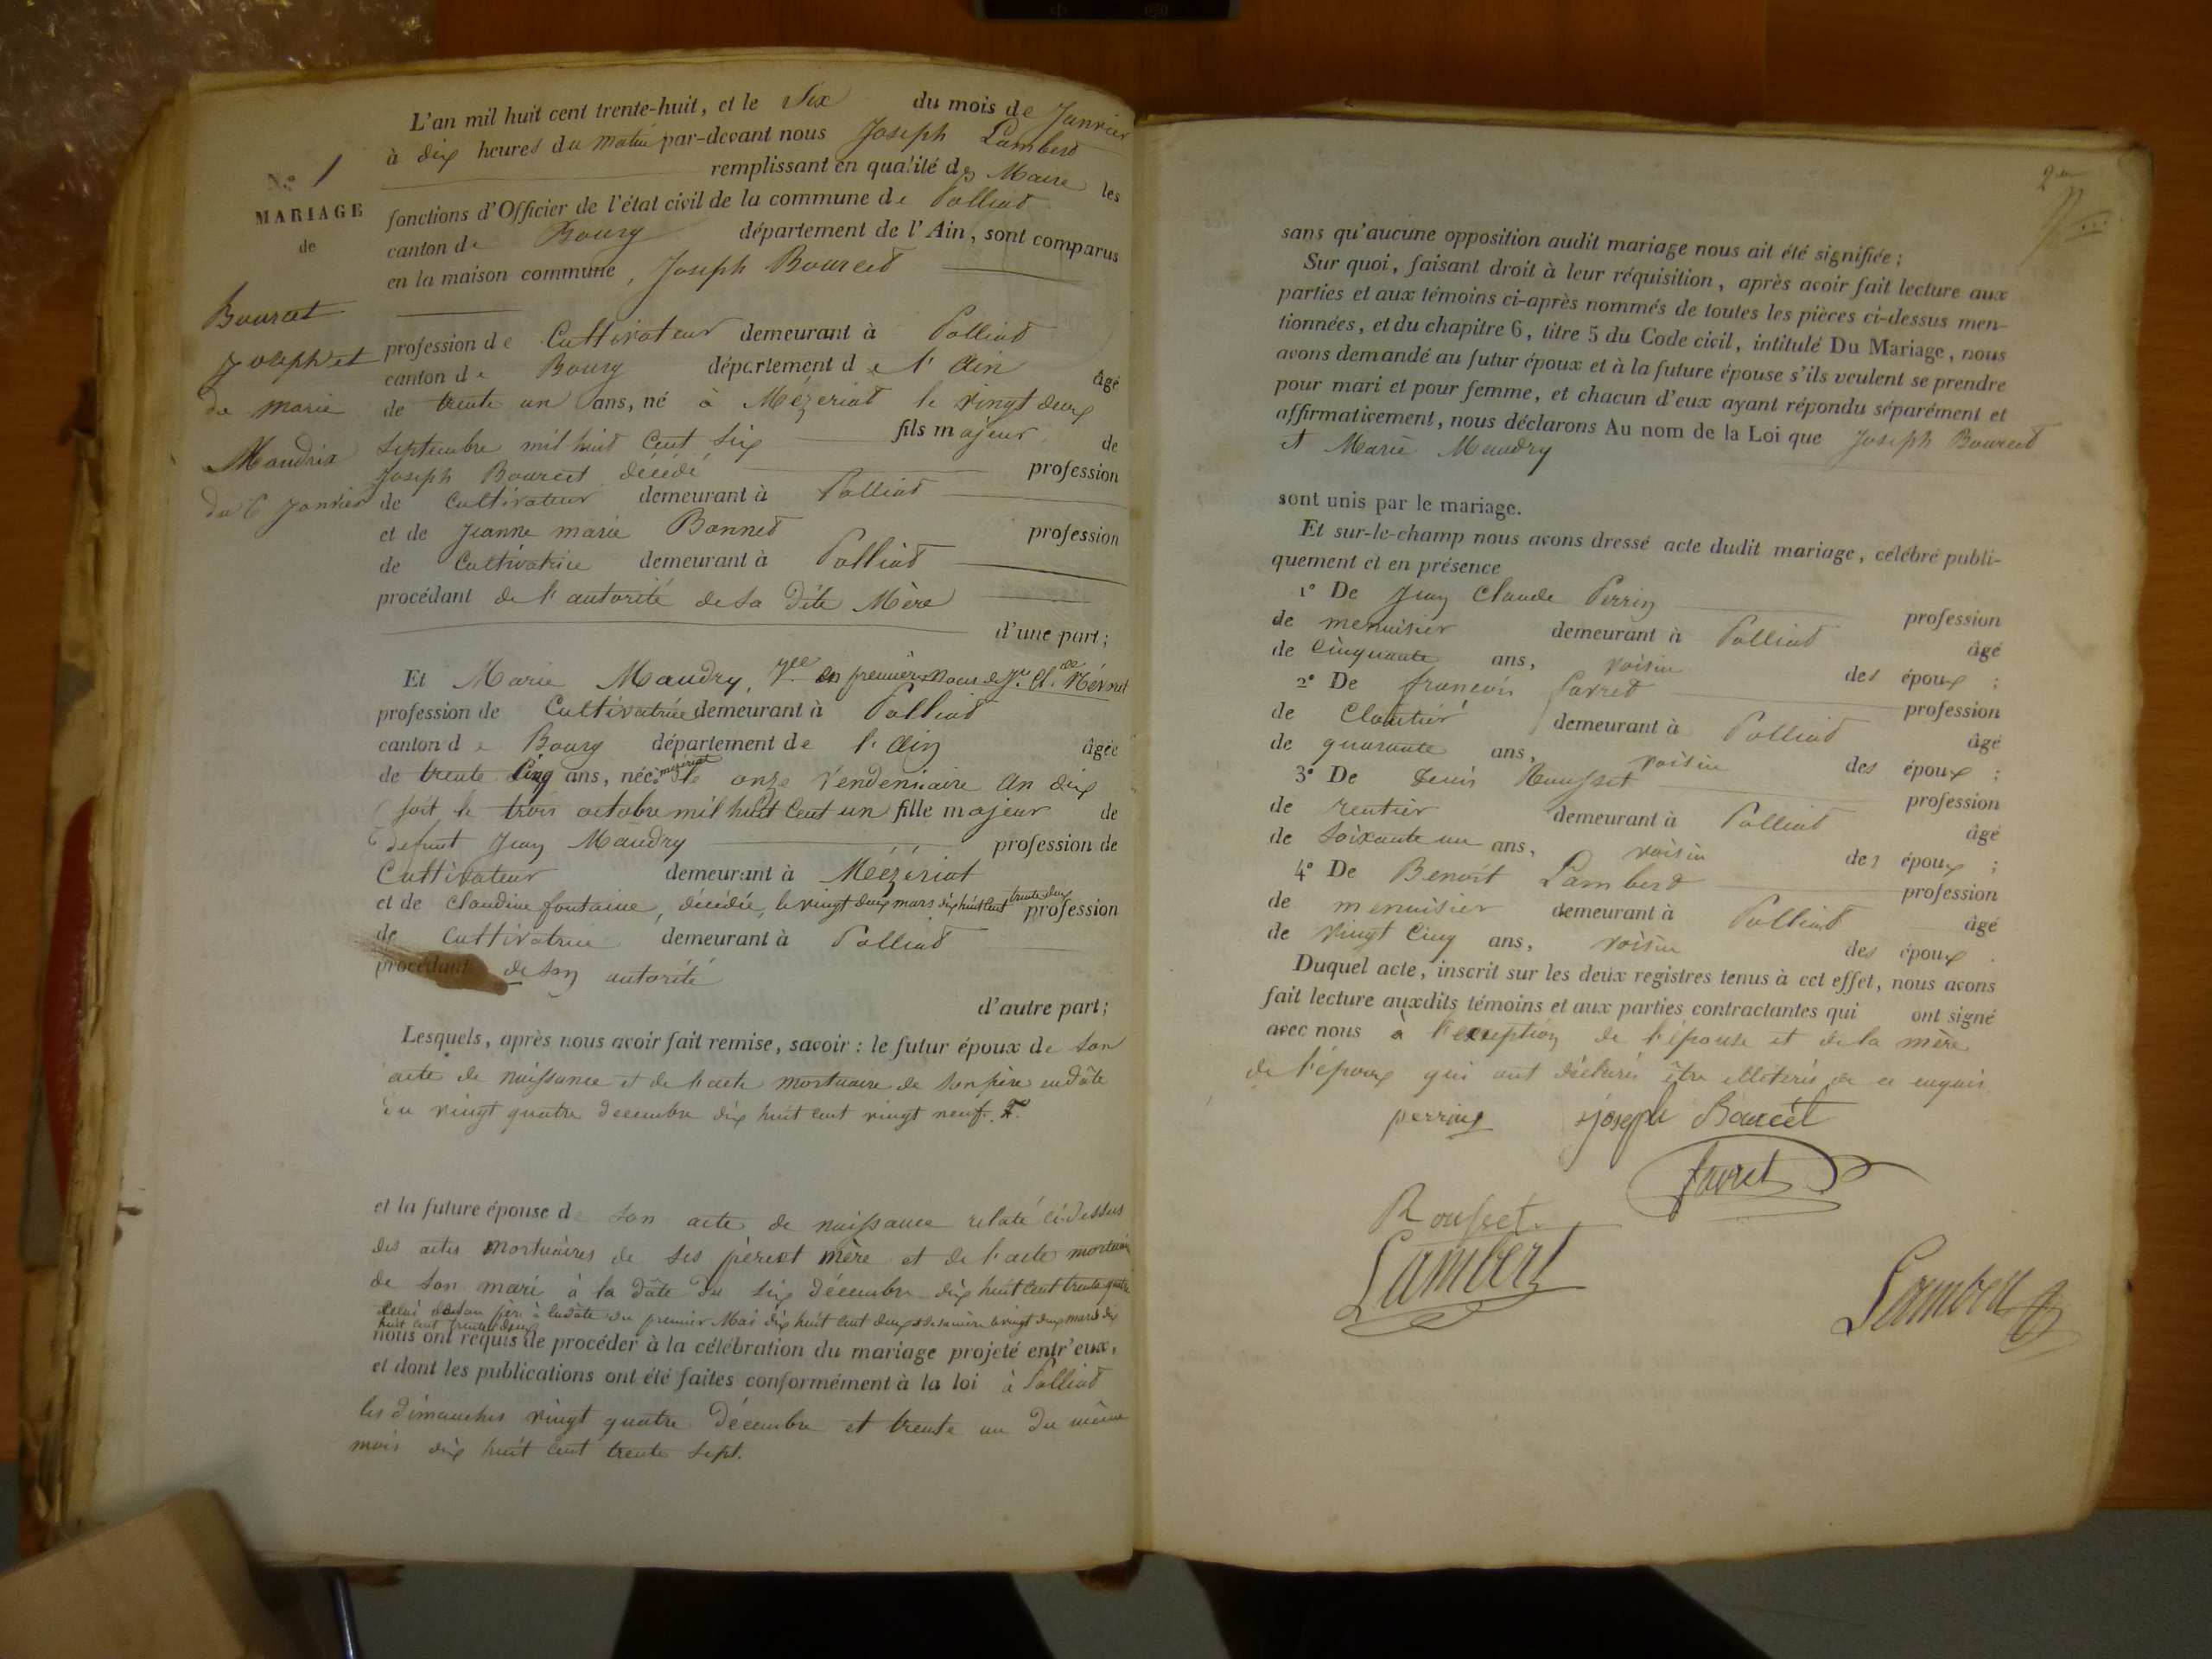 L'an mil huit cent trente-huit, et le Six du mois de Janvier
à dix heures du matin par-devant nous Joseph Lambert
remplissant en qualité de Maire les
fonctions d'Officier de l'état civil de la commune de Polliat
canton de Bourg département de l'Ain, sont comparus
en la maison commune, Joseph Bourcet
profession de Cultivateur demeurant à Polliat
canton de Bourg département de l'Ain âgé
de trente un ans, né à Mézériat le vingt deux
Septembre mil huit Cent Six fils majeur de
Joseph Bourcet décédé profession
de Cultivateur demeurant à Polliat
et de Jeanne marie Bonnet profession
de Cultivatrice demeurant à Polliat
procédant de l'autorité de sa dite Mère
d'une part;
Et Marie Maudry, en premières Noces de
profession de Cultivatrice demeurant à Polliat
canton de Bourg département de l'Ain âgée
de trente Cinq ans, née à mézériat le onze Vendemiaire an dix
soit le trois octobre mil huit Cent un fille majeur de
defunt Jean Maudry profession de
Cultivateur demeurant à Mézériat
et de Claudine fontaine, décédée, le vingt deux mars dix huit Cent trente deux profession
de Cultivatrice demeurant à Polliat
procédant de son autorité
d'autre part;
Lesquels, après nous avoir fait remise, savoir : le futur époux de Son
acte de naissance et de l'acte mortuaire de Son père en dâte
du vingt quatre decembre dix huit cent vingt neuf.
et la future épouse de Son acte de naissance relaté ci-dessus
des actes Mortuaires de Ses père et mère et de l'acte mortuaire
de Son mari à la dâte du Six décembre dix huit Cent trente quatre
Celui de Son père à la dâte du premier Mai dix huit Cent deux de Sa mère le vingt deux mars dix
huit Cent trente deux
nous ont requis de procéder à la célébration du mariage projeté entr'eux,
et dont les publications ont été faites conformément à la loi à Polliat
les dimanches vingt quatre Décembre et trente un du même
mois dix huit Cent trente Sept.
N.° 1
MARIAGE
de
Bourcet
Joseph et
de marie
Maudrix
du 6 Janvier
2
sans qu'aucune opposition audit mariage nous ait été signifiée;
Sur quoi, faisant droit à leur réquisition, après avoir fait lecture aux
parties et aux témoins ci-après nommés de toutes les pièces ci-dessus men-
tionnées, et du chapitre 6, titre 5 du Code civil, intitulé Du Mariage, nous
avons demandé au futur époux et à la future épouse s'ils veulent se prendre
pour mari et pour femme, et chacun d'eux ayant répondu séparément et
affirmativement, nous déclarons Au nom de la Loi que Joseph Bourcet
et Marie Maudry
sont unis par le mariage.
Et sur-le-champ nous avons dressé acte dudit mariage, célébré publi-
quement et en présence
1° De Jean Claude Perrin profession
de menuisier demeurant à Polliat âgé
de Cinquante ans, voisin des époux ;
2° De françois favret profession
de Cloutier demeurant à Polliat âgé
de quarante ans, voisin des époux ;
3° De Denis Rousset profession
de rentier demeurant à Polliat âgé
de Soixante un ans, voisin des époux ;
4° De Benoit Lambert profession
de menuisier demeurant à Polliat âgé
de vingt Cinq ans, voisin des époux .
Duquel acte, inscrit sur les deux registres tenus à cet effet, nous avons
fait lecture auxdits témoins et aux parties contractantes qui ont signé
avec nous à l'exception de l'épouse et de la mère
de l'époux qui ont déclaré être illitérés de ce enquis
perrin joseph Bourcet
favret
Rousset
Lambert
Lambert